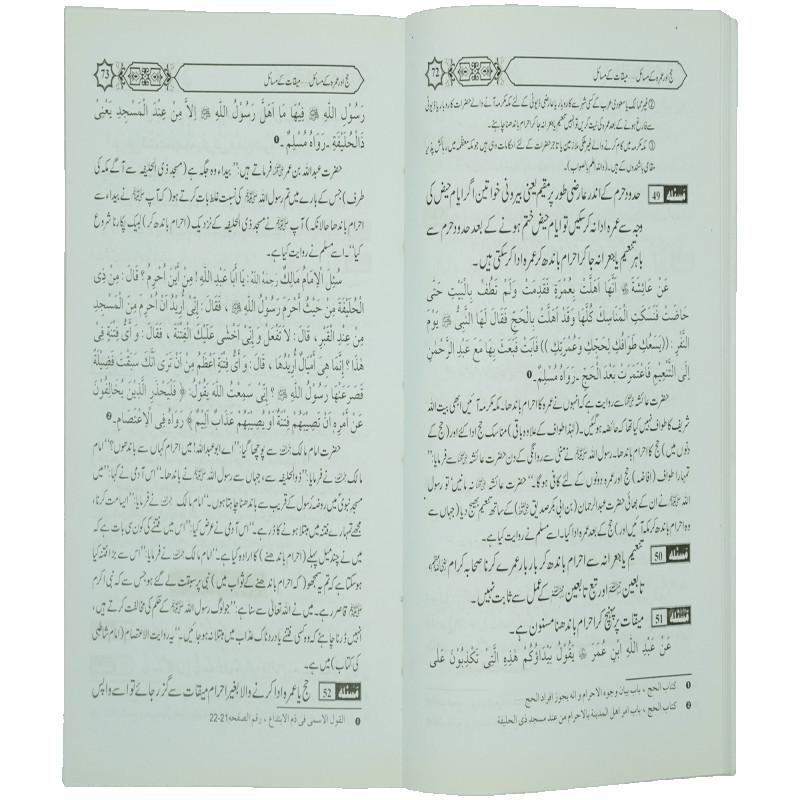 72
حج اور عمرہ کے مسائل.... میقات کے مسائل
② غیر ممالک یا سعودی عرب کے کسی شہر سے کاروبار یا عارضی ڈیوٹی کے لئے مکہ مکرمہ آنے والے حضرات کاروبار یا ڈیوٹی
سے فارغ ہونے کے بعد عمرہ کی نیت کریں تو انہیں تنعیم یا جعرانہ جا کر احرام باندھنا چاہئے۔
③ مکہ مکرمہ میں کام کرنے والے غیر ملکی ملازمین یا تاجر حضرات کے لئے احکامات وہی ہیں جو مکہ معظمہ میں رہائش پذیر
مقامی باشندوں کے ہیں۔ (واللہ اعلم بالصواب)
مسئلہ 49 حدود حرم کے اندر عارضی طور پر مقیم یعنی بیرونی خواتین اگر ایام حیض کی
وجہ سے عمرہ ادا نہ کر سکیں تو ایام حیض ختم ہونے کے بعد حدود حرم سے
باہر تنعیم یا جعرانہ جا کر احرام باندھ کر عمرہ ادا کر سکتی ہیں۔
عَنْ عَائِشَةَ ؓ أَنَّهَا اَهَلَّتْ بِعُمْرَةٍ فَقَدِمَتْ وَلَمْ تَطُفْ بِالْبَيْتِ حَتَّى
حَاضَتْ فَنَسَكَتِ الْمَنَاسِكَ كُلَّهَا وَقَدْ اَهَلَّتْ بِالْحَجِّ فَقَالَ لَهَا النَّبِيُّ ﷺ يَوْمَ
النَّفْرِ : (( يَسَعُكِ طَوَافُكِ لِحَجِّكِ وَعُمْرَتِكِ )) فَاَبَتْ فَبَعَثَ بِهَا مَعَ عَبْدِ الرَّحْمٰنِ
اِلَى التَّنْعِيْمِ فَاعْتَمَرَتْ بَعْدَ الْحَجِّ ۔ رَوَاهُ مُسْلِمٌ ۔ ❶
حضرت عائشہ ؓ سے روایت ہے کہ انہوں نے عمرہ کا احرام باندھا۔ مکہ مکرمہ آئیں ابھی بیت اللہ
شریف کا طواف نہیں کیا تھا کہ حائضہ ہو گئیں۔ (لہٰذا طواف کے علاوہ باقی) مناسک حج ادا کئے اور (حج کے
دنوں میں) حج کا احرام باندھا۔ رسول اللہ ﷺ نے منیٰ سے روانگی کے دن حضرت عائشہ ؓ سے فرمایا:"
تمہارا طواف (افاضہ) حج اور عمرہ دونوں کے لئے کافی ہوگا۔" حضرت عائشہ ؓ نہ مانیں تو رسول
اللہ ﷺ نے ان کے بھائی حضرت عبدالرحمان (بن ابی بکر صدیق ؓ) کے ساتھ تنعیم بھیج دیا (جہاں سے
وہ احرام باندھ کر مکہ آئیں اور) حج کے بعد عمرہ ادا کیا۔ اسے مسلم نے روایت کیا ہے۔
مسئلہ 50 تنعیم یا جعرانہ سے احرام باندھ کر بار بار عمرے کرنا صحابہ کرام ؓ،
تابعین ؒ اور تبع تابعین ؒ کے عمل سے ثابت نہیں۔
مسئلہ 51 میقات پر پہنچ کر احرام باندھنا مسنون ہے۔
عَنْ عَبْدِ اللّٰهِ ابْنِ عُمَرَ ؓ يَقُوْلُ بَيْدَاؤُكُمْ هٰذِهِ الَّتِيْ تَكْذِبُوْنَ عَلَى
❶ كتاب الحج ، باب بيان وجوه الاحرام و انه يجوز افراد الحج
❷ كتاب الحج ، باب امر اهل المدينة بالاحرام من عند مسجد ذى الحليفة
73
حج اور عمرہ کے مسائل.... میقات کے مسائل
رَسُوْلِ اللّٰهِ ﷺ فِيْهَا مَا اَهَلَّ رَسُوْلُ اللّٰهِ ﷺ اِلَّا مِنْ عِنْدِ الْمَسْجِدِ يَعْنِىْ
ذَالْحُلَيْفَةِ ۔ رَوَاهُ مُسْلِمٌ ۔ ❶
حضرت عبداللہ بن عمر ؓ فرماتے ہیں:"بیداء وہ جگہ ہے (مسجد ذی الحلیفہ سے آگے مکہ کی
طرف) جس کے بارے میں تم رسول اللہ ﷺ کی نسبت غلط بات کرتے ہو (کہ آپ ﷺ نے بیداء سے
احرام باندھا حالانکہ) آپ ﷺ نے مسجد ذی الحلیفہ کے نزدیک (احرام باندھ کر) لبیک پکارنا شروع
کیا"۔ اسے مسلم نے روایت کیا ہے۔
سُئِلَ الْاِمَامُ مَالِكٌ رَحِمَهُ اللّٰهُ: يَا اَبَا عَبْدِ اللّٰهِ! مِنْ اَيْنَ اُحْرِمُ ؟ قَالَ : مِنْ ذِى
الْحُلَيْفَةِ مِنْ حَيْثُ اَحْرَمَ رَسُوْلُ اللّٰهِ ﷺ ، فَقَالَ : اِنِّيْ اُرِيْدُ اَنْ اُحْرِمَ مِنَ الْمَسْجِدِ
مِنْ عِنْدِ الْقَبْرِ ، قَالَ : لَا تَفْعَلْ وَ اِنِّيْ اَخْشٰى عَلَيْكَ الْفِتْنَةَ ، فَقَالَ : وَ اَىُّ فِتْنَةٍ فِيْ
هٰذَا ؟ اِنَّمَا هِىَ اَمْيَالٌ اُرِيْدُهَا ، قَالَ : وَ اَىُّ فِتْنَةٍ اَعْظَمُ مِنْ اَنْ تَرٰى اَنَّكَ سَبَقْتَ فَضِيْلَةً
قَصَرَ عَنْهَا رَسُوْلُ اللّٰهِ ﷺ ؟ اِنِّيْ سَمِعْتُ اللّٰهَ يَقُوْلُ: ﴿ فَلْيَحْذَرِ الَّذِيْنَ يُخَالِفُوْنَ
عَنْ اَمْرِهٖ اَنْ تُصِيْبَهُمْ فِتْنَةٌ اَوْ يُصِيْبَهُمْ عَذَابٌ اَلِيْمٌ ﴾ رَوَاهُ فِى الْاِعْتِصَامِ ۔ ❷
حضرت امام مالک ؒ سے پوچھا گیا:"اے ابوعبداللہ! میں احرام کہاں سے باندھوں؟" امام
مالک ؒ نے فرمایا:"ذوالحلیفہ سے، جہاں سے رسول اللہ ﷺ نے باندھا۔" اس آدمی نے کہا:"میں
مسجد نبوی میں روضہ رسول کے قریب سے باندھنا چاہتا ہوں۔" امام مالک ؒ نے فرمایا:"ایسا مت کرنا،
مجھے تمہارے فتنہ میں مبتلا ہونے کا ڈر ہے۔" اس آدمی نے عرض کیا:"اس میں فتنے کی کون سی بات ہے کہ
میں نے چند میل پہلے (احرام باندھنے) کا ارادہ کیا ہے۔" امام مالک ؒ نے فرمایا:"اس سے بڑا فتنہ کیا
ہو سکتا ہے کہ تم یہ سمجھو (کہ احرام باندھنے کے ثواب میں) نبی پر سبقت لے گئے ہو جس سے کہ نبی اکرم
ﷺ قاصر رہے۔ میں نے اللہ تعالیٰ سے سنا ہے:"جو لوگ رسول اللہ ﷺ کے حکم کی مخالفت کرتے ہیں،
انہیں ڈرنا چاہئے کہ وہ کسی فتنے یا دردناک عذاب میں مبتلا نہ ہو جائیں۔" یہ روایت الاعتصام (امام شاطبی
کی کتاب) میں ہے۔
مسئلہ 52 حج یا عمرہ ادا کرنے والا بغیر احرام میقات سے گزر جائے تو اسے واپس
❶ القول الاسمى فى ذم الابتداع ، رقم الصفحه 21-22